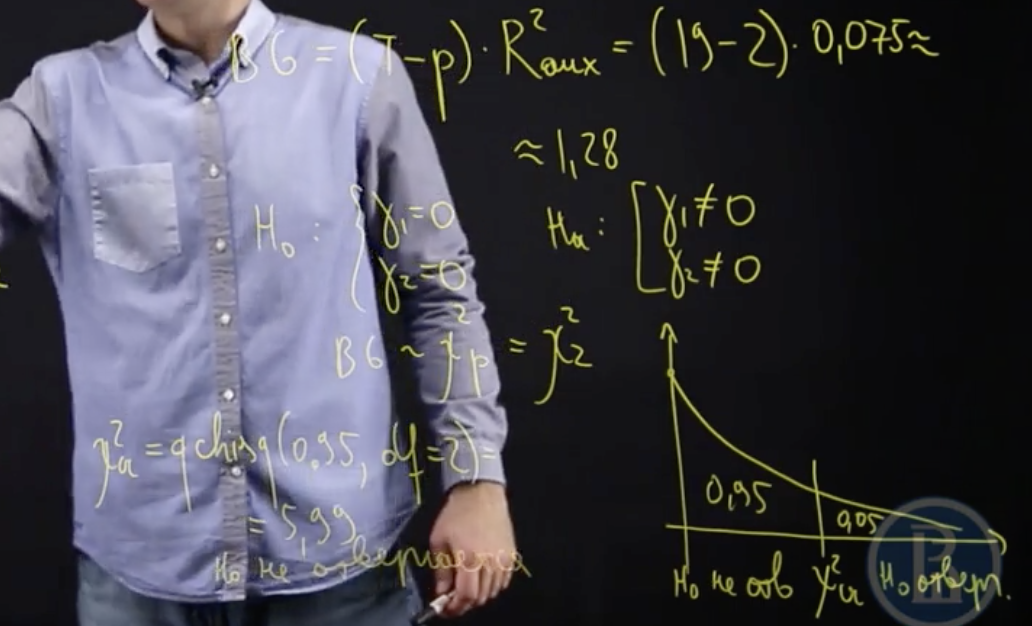 BG = (T-p) · R²aux = (19-2) · 0,075 ≈
≈ 1,28
H₀ : { γ₁=0
γ₂=0
Hₐ : [ γ₁≠0
γ₂≠0
BG ~ χ²p = χ²₂
χ²cr = qchisq(0.95, df=2) =
= 5,99
H₀ не отвергается
0,95
0,05
H₀ не отв χ²cr H₀ отверг.